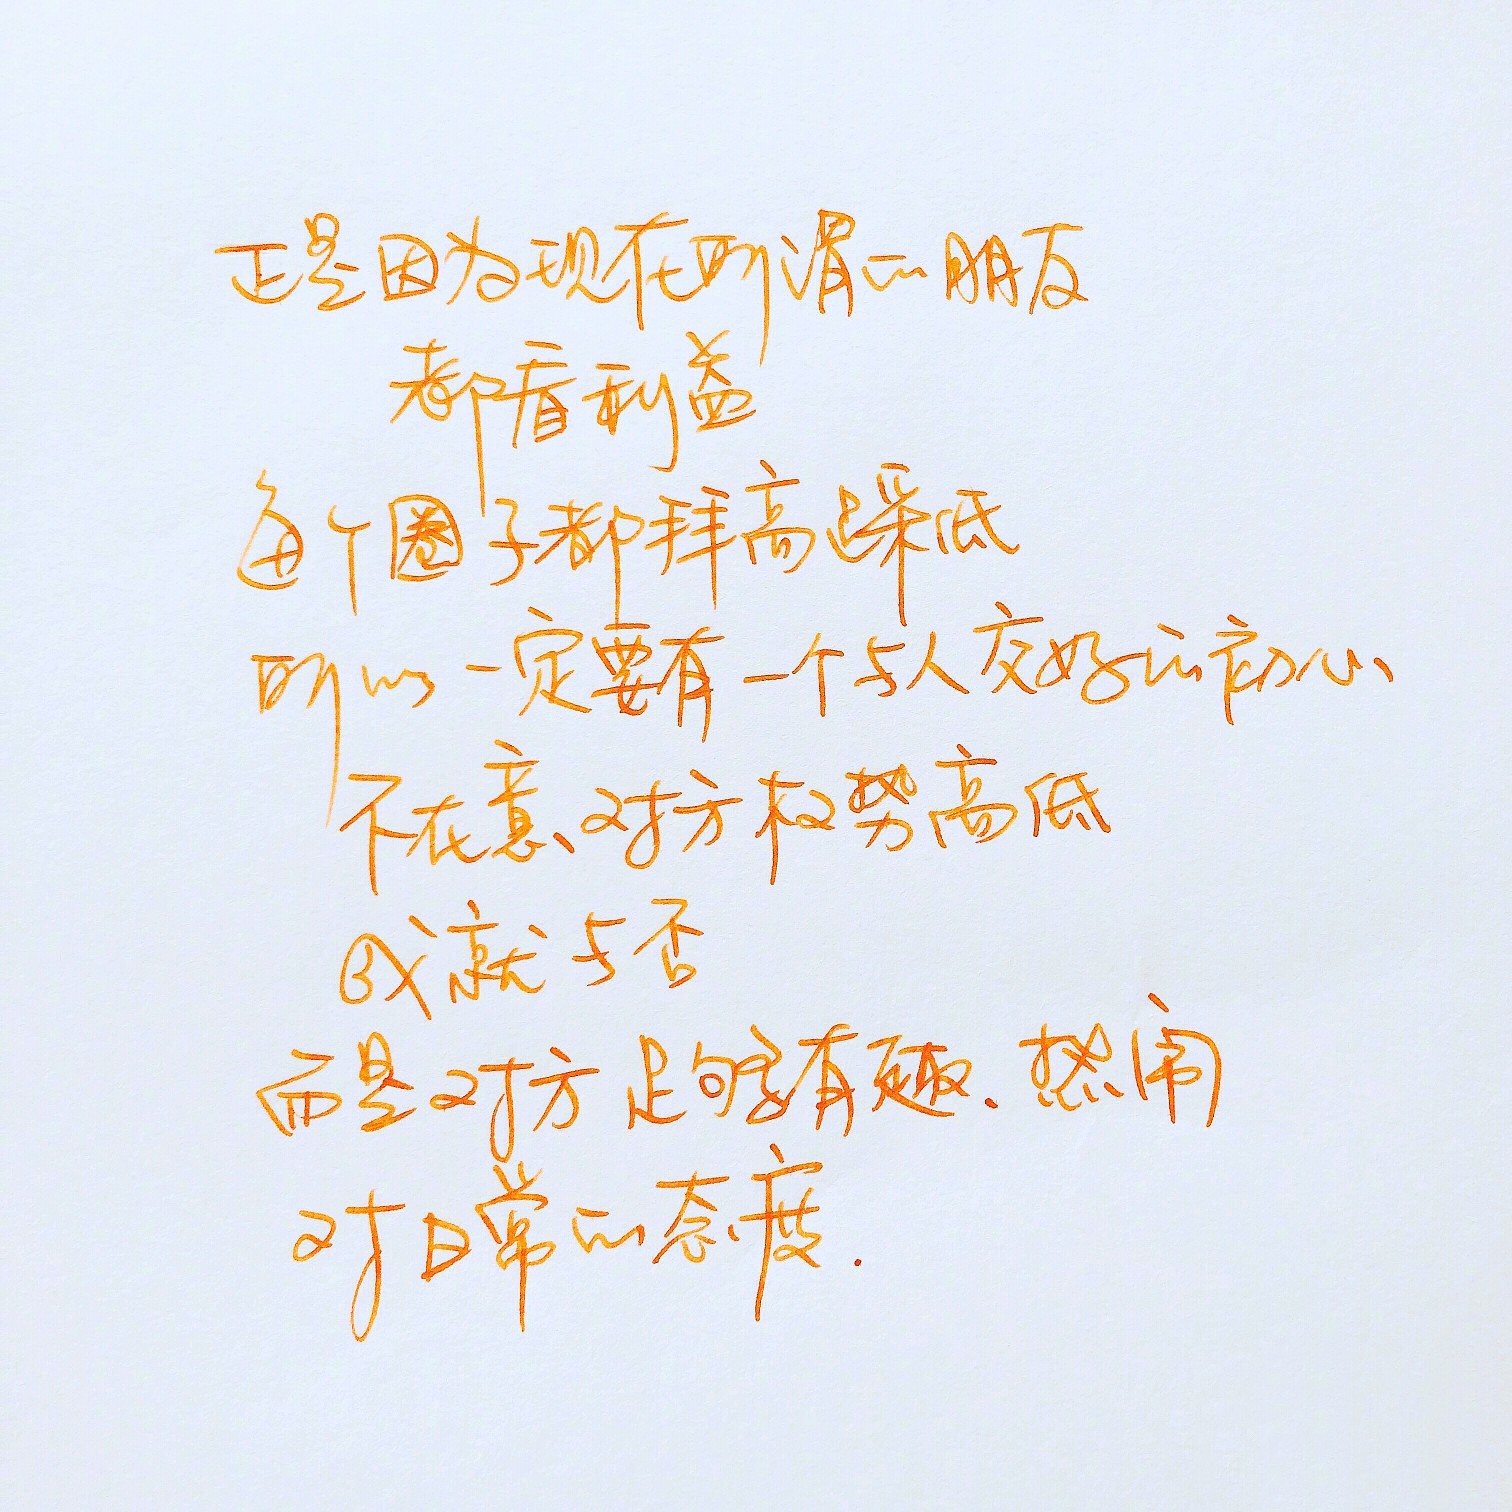 正是因为现在所谓的朋友
都看利益
每个圈子都拜高踩低
所以一定要有一个与人交好的初心
不在意对方权势高低
成就与否
而是对方足够有趣.热闹
对日常的态度.